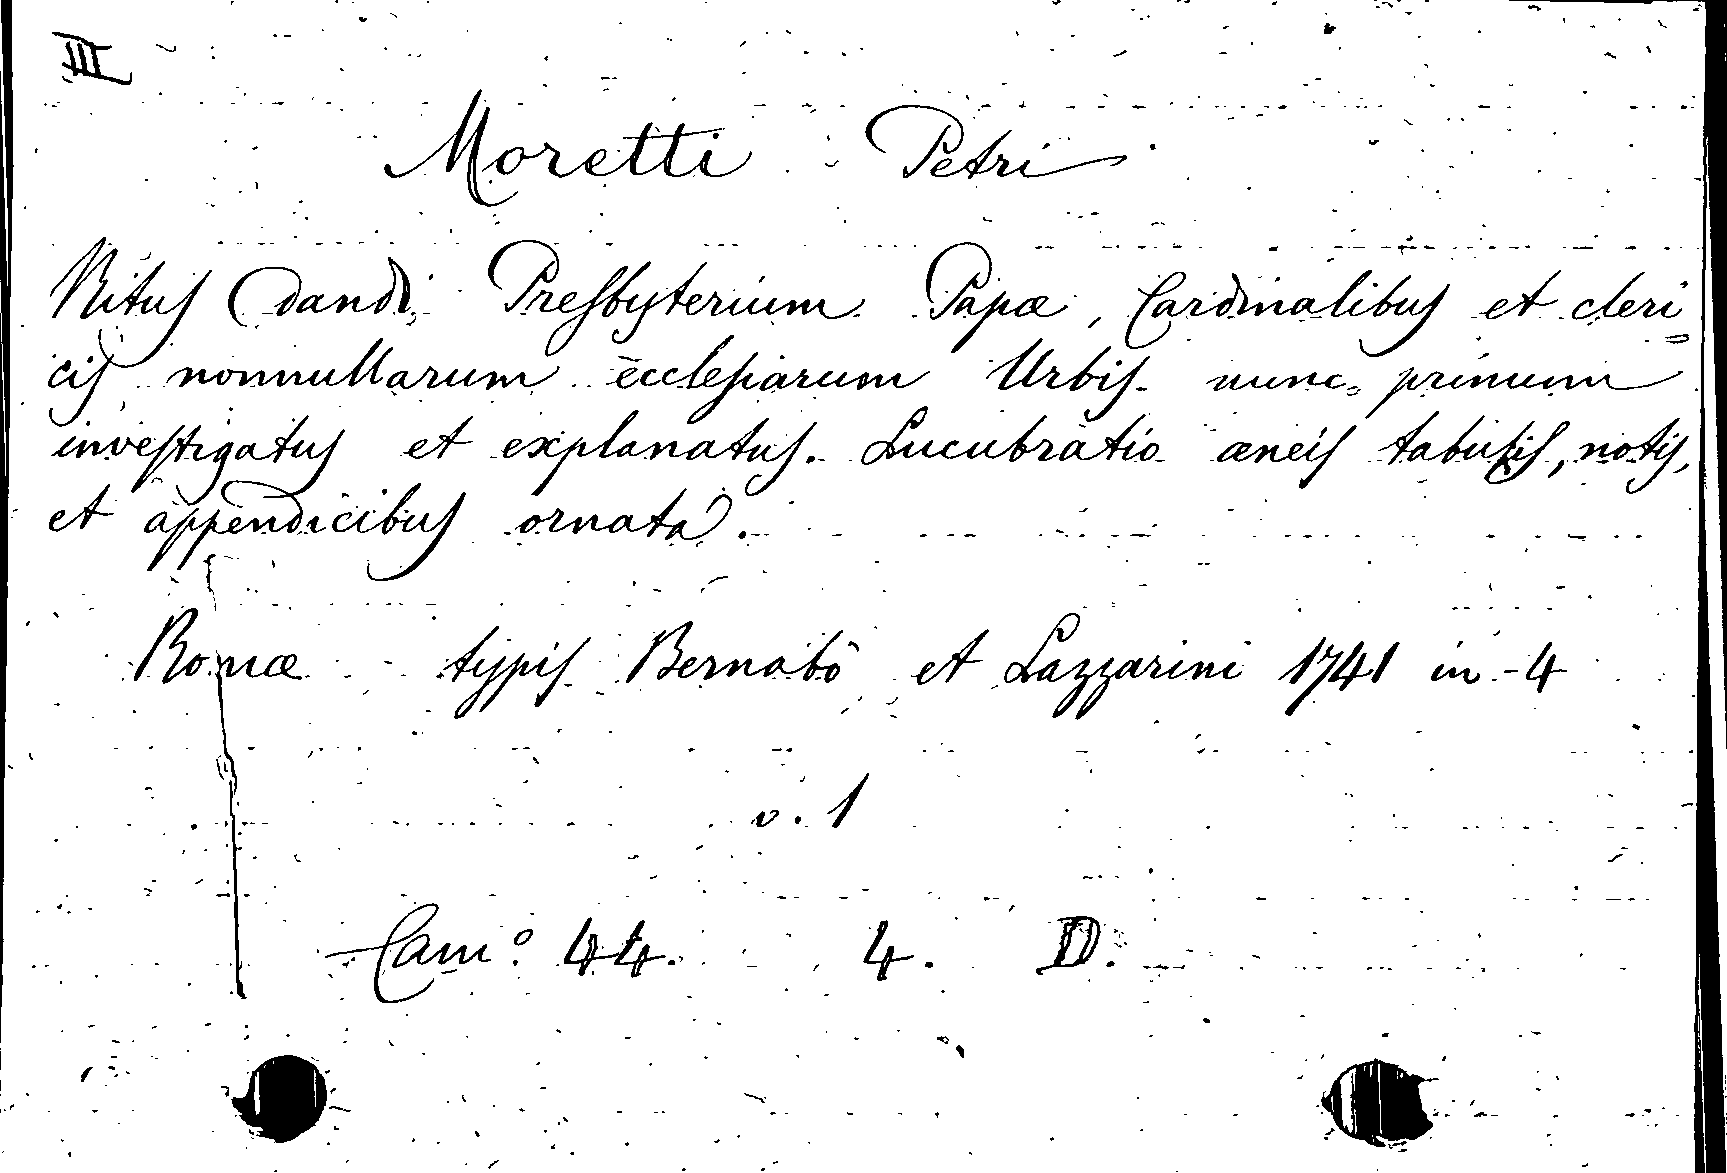 III
Moretti Petri
Ritus dandi Presbyterium Papæ, Cardinalibus et cleri=
cis nonnullarum ecclesiarum Urbis nunc primum
investigatus et explanatus. Lucubratio æneis tabulis, notis,
et appendicibus ornata.
Romæ typis Bernabò et Lazzarini 1741 in-4
v. 1
Cam.° 44. 4. D.